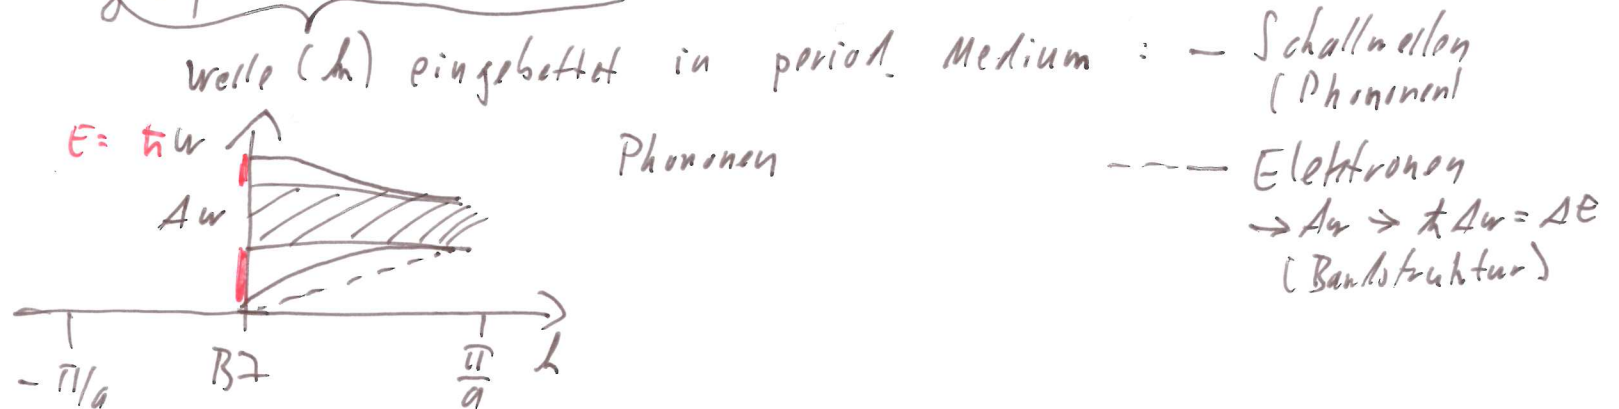 Welle (k) eingebettet in period. Medium : — Schallwellen
(Phononen)
E = ħω
Phononen
--- — Elektronen
Δω
→ Δω → ħ Δω = ΔE
(Bandstruktur)
- π/a
BZ
π/a
k